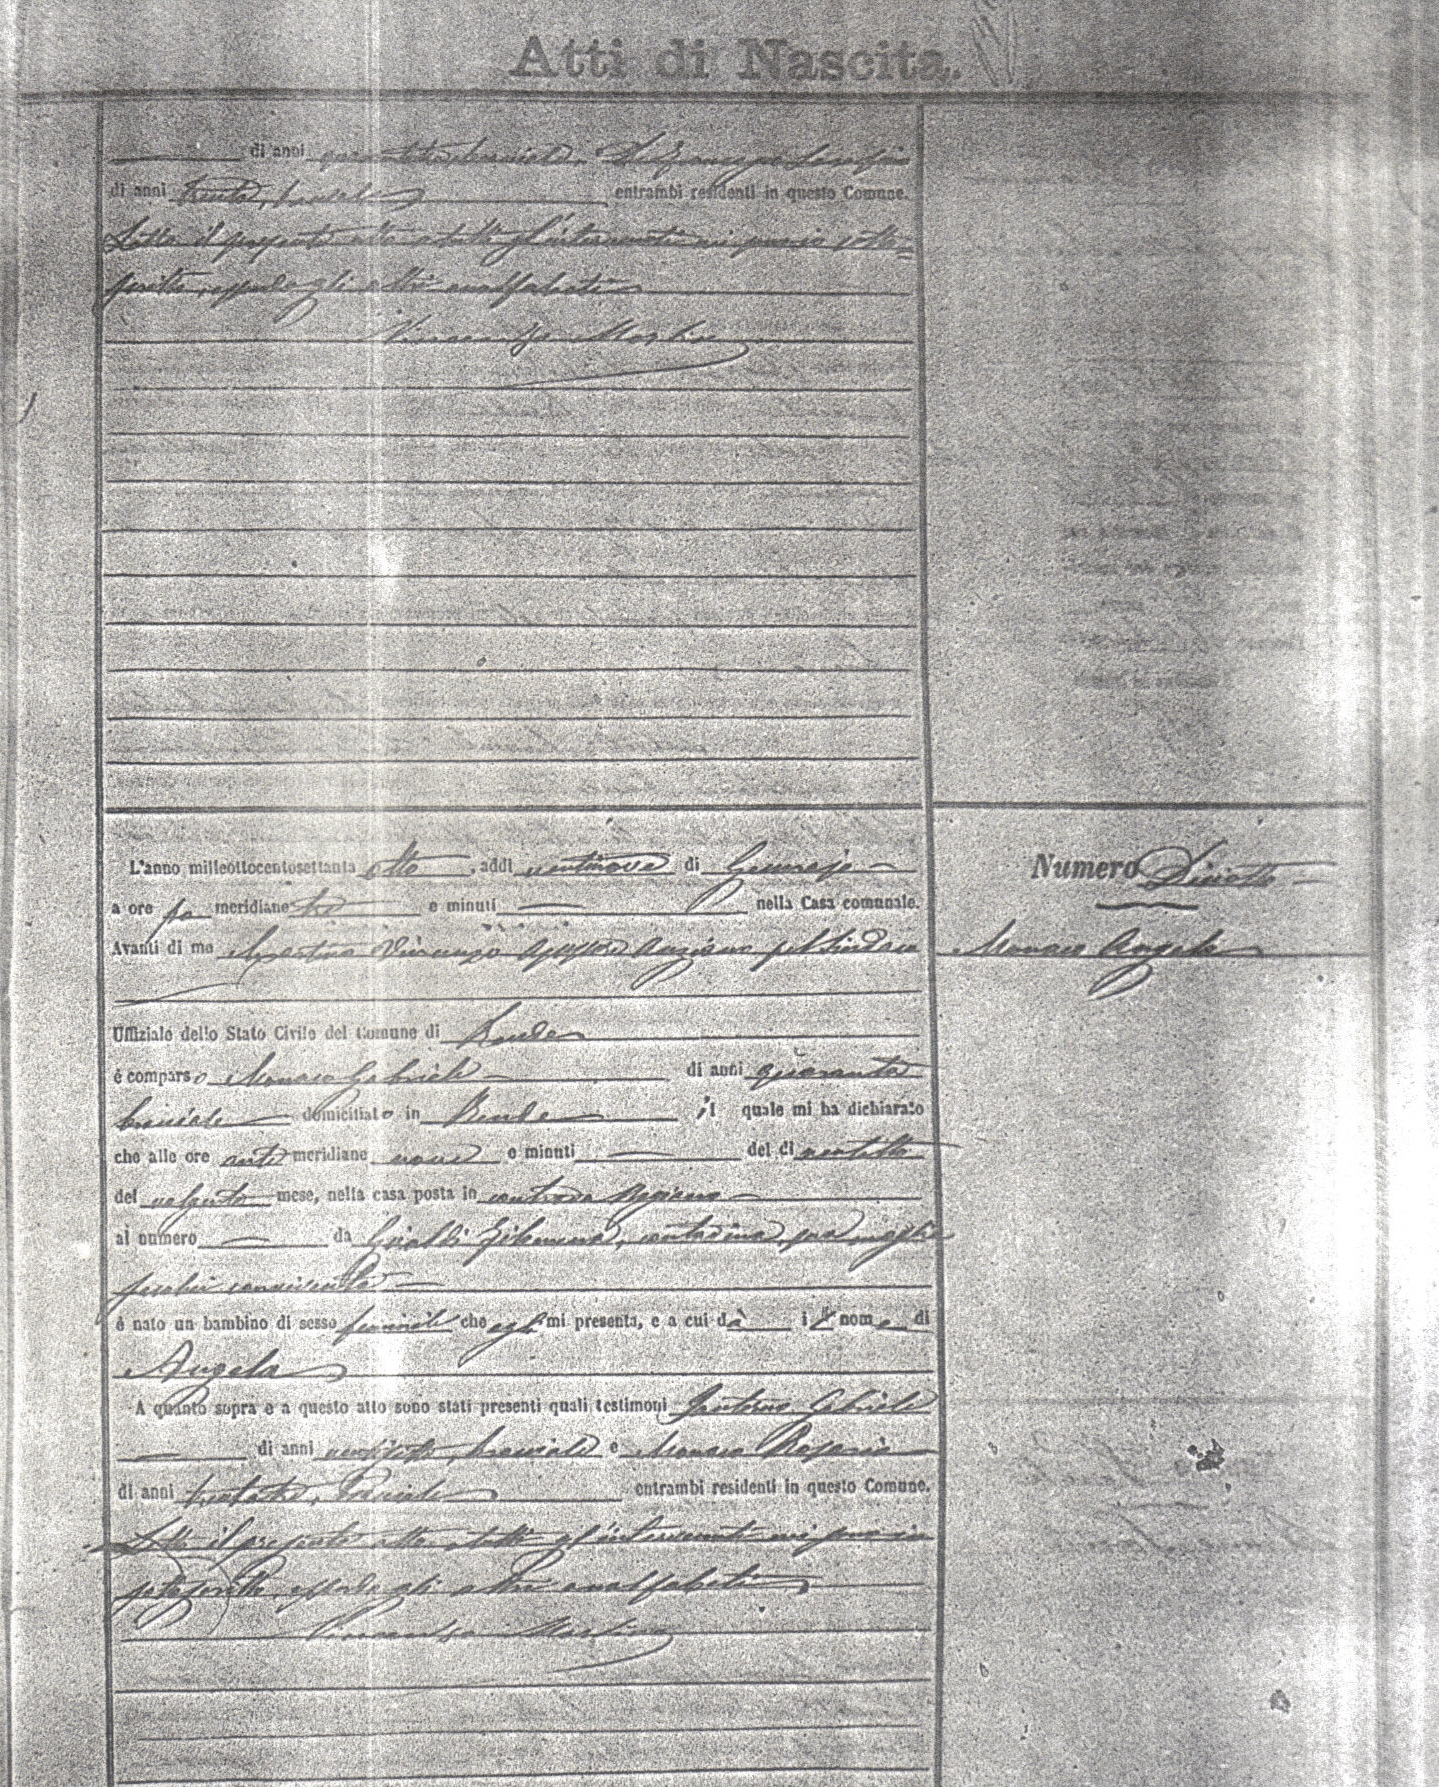 Atti di Nascita.
di anni
di anni trenta, entrambi residenti in questo Comune.
Letto il presente atto a tutti gl'intervenuti mi sono io sotto=
scritto, essendo gli altri analfabeti
Vincenzo Martino
L'anno milleottocentosettanta otto, addi ventinove di Gennajo
a ore po meridiane tre e minuti nella Casa comunale.
Avanti di me Martino Vincenzo Assessore Anziano pel Sindaco
Uffiziale dello Stato Civile del Comune di Rende
è comparso Monaco Gabriele di anni quaranta
bracciale domiciliato in Rende il quale mi ha dichiarato
che alle ore anti meridiane nove e minuti del dì ventotto
del volgente mese, nella casa posta in contrada
al numero da Filomena, contadina, sua moglie
seco lui convivente
è nato un bambino di sesso feminile che egli mi presenta, e a cui dà il nome di
Angela
A quanto sopra e a questo atto sono stati presenti quali testimoni Gabriele
di anni bracciale e Monaco Rosario
di anni bracciale entrambi residenti in questo Comune.
Letto il presente atto a tutti gl'intervenuti mi sono io
sottoscritto, essendo gli altri analfabeti
Vincenzo Martino
Numero Diciotto
Monaco Angela